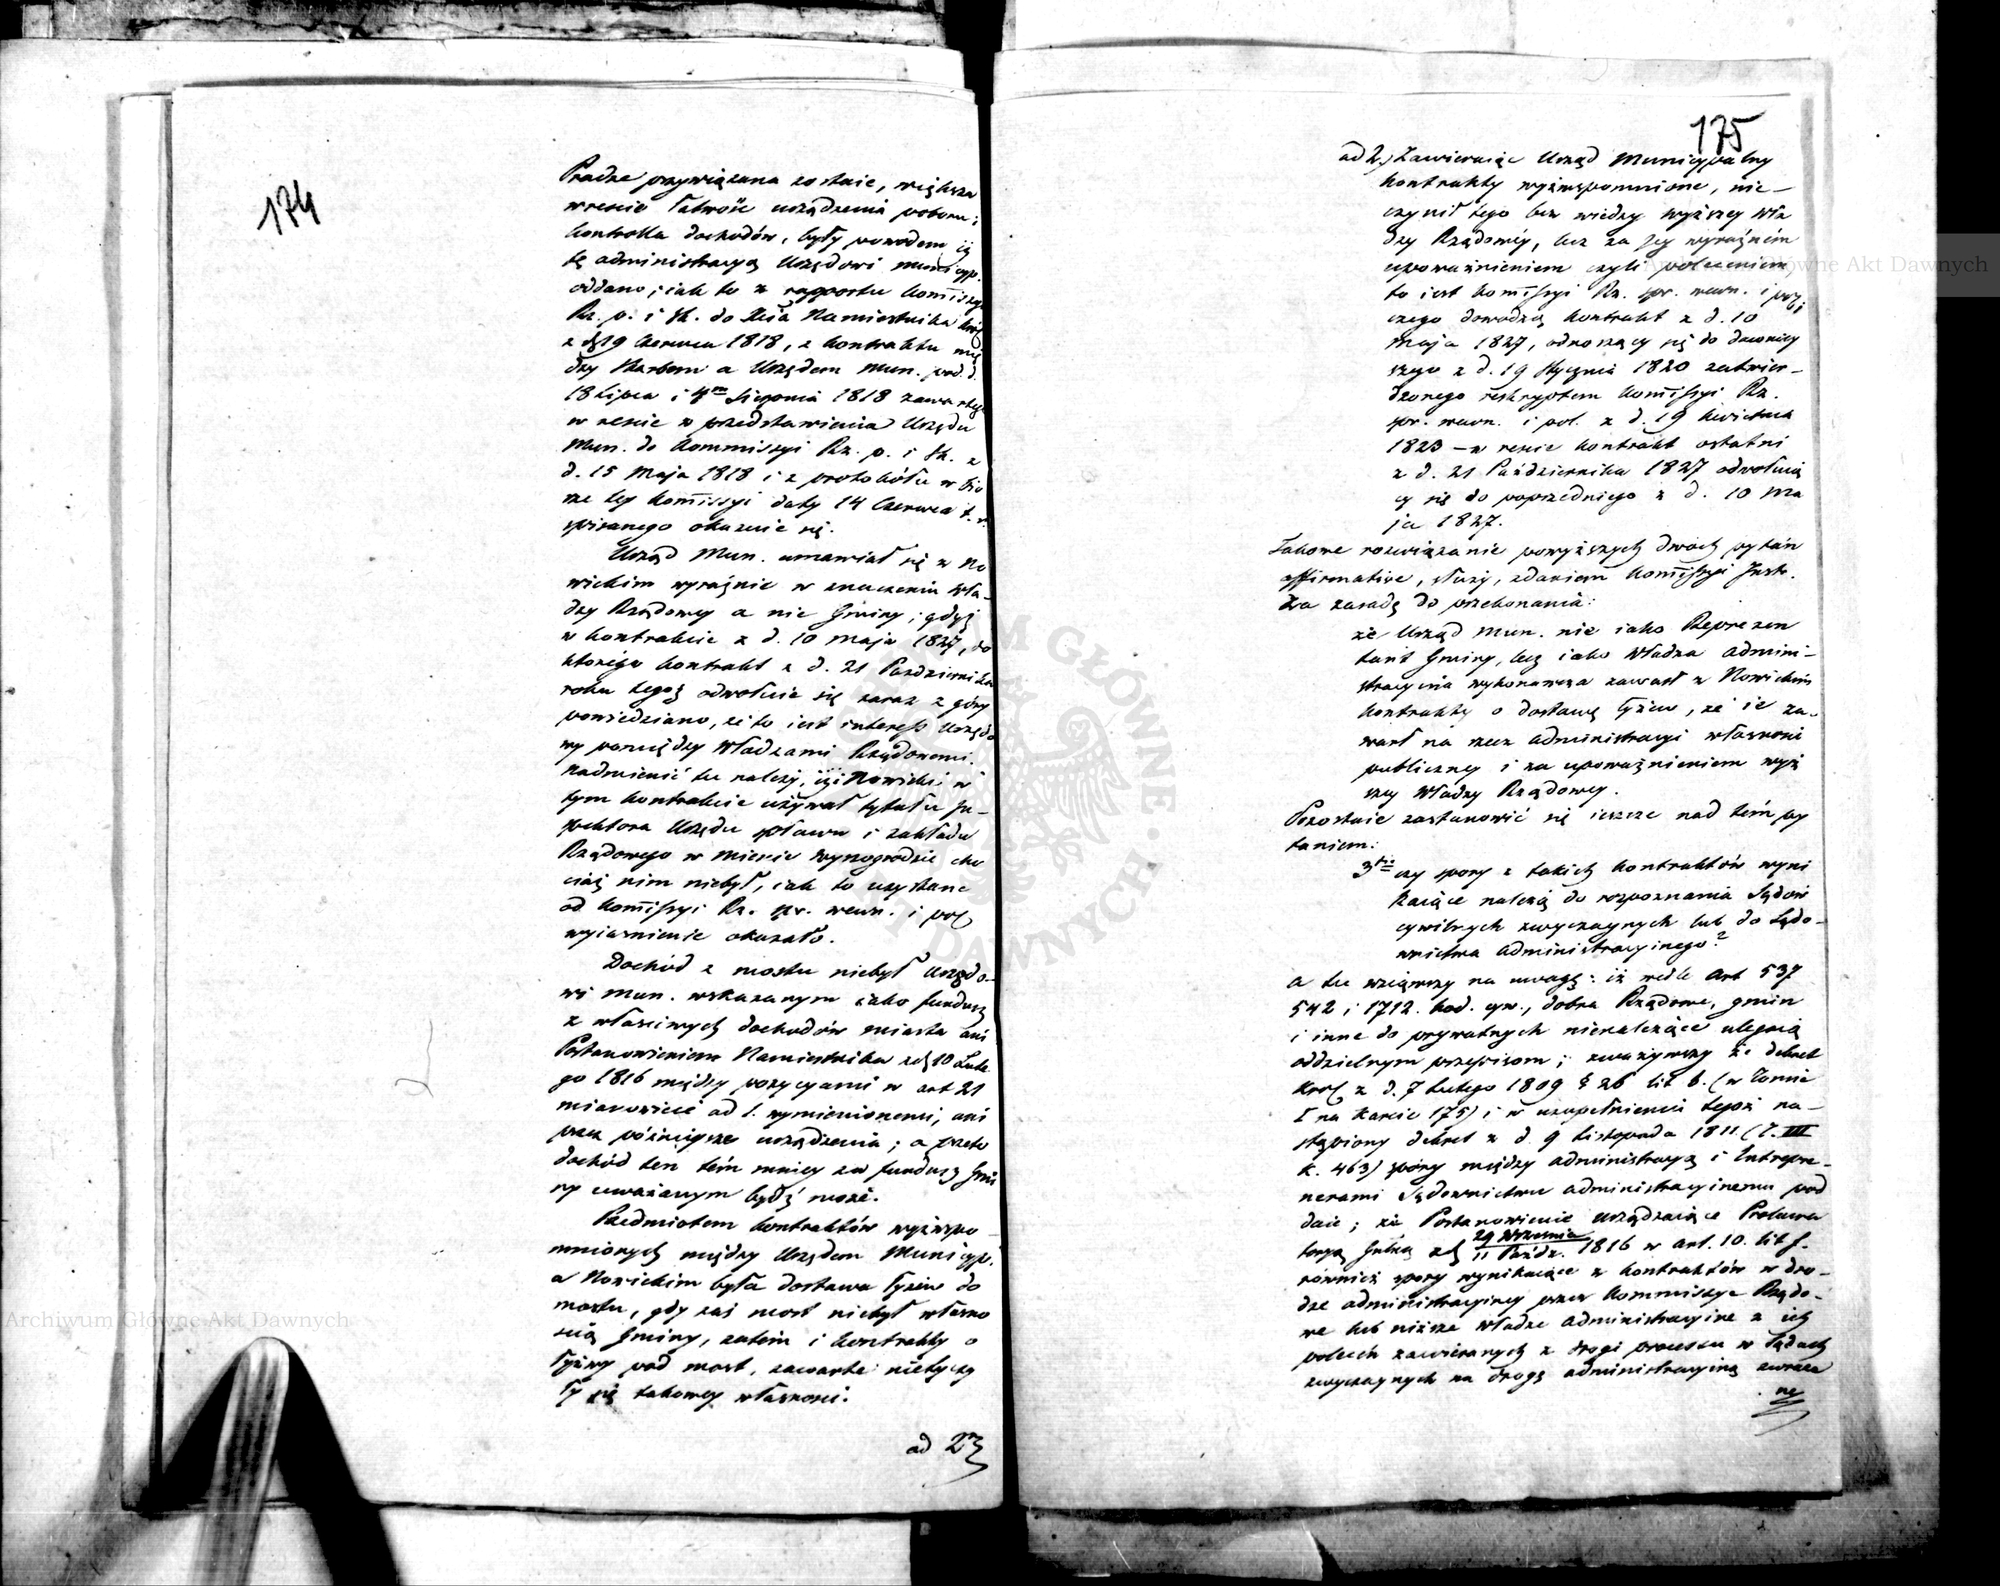 174
Pradze przywiązana zostaie, większa
wreszcie łatwość urządzenia poboru i
kontrolla dochodów, były powodem iż
tę administracyą Urzędowi municyp.
oddano; iak to z rapportu Kommissyi
Rz. p. i Sk. do Xcia Namiestnika
z d. 19 Czerwca 1818, z kontraktu mię
dzy Skarbem a Urzędem Mun. pod d.
18 Lipca i 4m Sierpnia 1818 zawartego
wreszcie z przedstawienia Urzędu
Mun. do Kommissyi Rz. p. i Sk. z
d. 15 Maja 1818 i z protokółu w Biu
rze tey Kommissyi daty 14 Czerwca t. r.
spisanego okazuie się.
Urząd Mun. umawiał się z No
wickim wyraźnie w znaczeniu wła-
dzy Rządowey a nie Gminy; gdyż
w kontrakcie z d. 10 Maja 1827, do
którego kontrakt z d. 21 Pazdziernika
roku tegoż odwołuie się zaraz z góry
powiedziano, że to iest interess Urzędo
wy pomiędzy Władzami Rządowemi.
Nadmienić tu należy, iż i Nowicki w
tym kontrakcie używał tytułu In-
spektora Urzędu spławu i zakładu
Rządowego w mieście Wyszogrodzie cho
ciaż nim niebył, iak to uzyskane
od Kommissyi Rz. spr. wewn. i pol.
wyiasnienie okazało.
Dochód z mostu niebył Urzędo-
wi Mun. wskazanym iako fundusz
z właściwych dochodów miasta ani
Postanowieniem Namiestnika z d. 10 Lute
go 1816 między pozycyami w art 21
mianowicie ad l. wymienionemi, ani
przez późnieysze urządzenia; a przeto
dochód ten tém mniey za fundusz Gmi
ny uważanym bydź może.
Przedmiotem kontraktów wyżwspo-
mnionych między Urzędem Municyp.
a Nowickim była dostawa łyżew do
mostu, gdy zaś most niebył własno
scią Gminy, zatém i kontrakty o
łyżwy pod most, zawarte nietyczy
ły się takowey własnosci.
ad 2
175
ad 2.) Zawieraiąc Urząd Municypalny
kontrakty wyżwspomnione, nie-
czynił tego bez wiedzy wyższey Wła
dzy Rządowéy, lecz za Jey wyraźném
upoważnieniem czyli poleceniem
to iest Kommissyi Rz. spr. wewn. i pol;
czego dowodzą kontrakt z d. 10
Maja 1827, odnoszący się do dawniey
szego z d. 19 Stycznia 1820 zatwier-
dzonego reskryptem Kommissyi Rz.
spr. wewn. i pol. z d. 19 Kwietnia
1823 – w reszcie kontrakt ostatni
z d. 21 Października 1827 odwołuią
cy się do poprzedniego z d. 10 Ma
ja 1827.
Takowe rozwiązanie powyższych dwóch pytań
affirmative, służy, zdaniem Kommissyi Instr.
za zasadę do przekonania:
że Urząd Mun. nie iako Reprezen
tant Gminy, lecz iako Władza admini-
stracyina wykonawcza zawarł z Nowickim
kontrakty o dostawę łyżew, że ie za-
warł na rzecz administracyi własności
publiczney i za upoważnieniem wyż
szey Władzy Rządowey.
Pozostaie zastanowić się ieszcze nad tém py
taniem:
3tio czy spory z takich kontraktów wyni
kaiące należą do rozpoznania Sądów
cywilnych zwyczaynych lub do Sądo-
wnictwa administracyinego?
a tu wziąwszy na uwagę: iż wedle art 537
542 i 1712. kod. cyw., dobra Rządowe, gmin
i inne do prywatnych nienależące ulegaią
oddzielnym przepisom; zważywszy że dekret
Król. z d. 7 Lutego 1809 § 26 lit b. (w Tomie
I na karcie 175) i w uzupełnieniu tegoż na-
stąpiony dekret z d. 9 Listopada 1811 (T. III
k. 463) spory między administracyą i Entrepre-
nerami Sądownictwu administracyinemu pod
daie; że Postanowienie urządzaiące Prokura
toryą Jlną z d. 29 Września
11 Paźdz. 1816 w art. 10. lit f.
również spory wynikaiące z kontraktów w dro-
dze administracyiney przez Kommissye Rządo-
we lub niższe władze administracyine z ich
poleceń zawieranych z drogi processu w Sądach
zwyczaynych na drogę administracyiną zwraca
ne
Archiwum Główne Akt Dawnych
Archiwum Główne Akt Dawnych